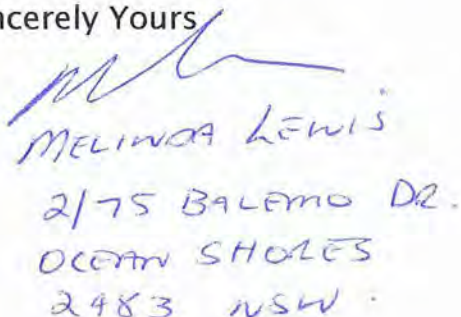 ncerely Yours
MELINDA LEWIS
2/75 BALEMO DR.
OCEAN SHORES
2483 NSW.